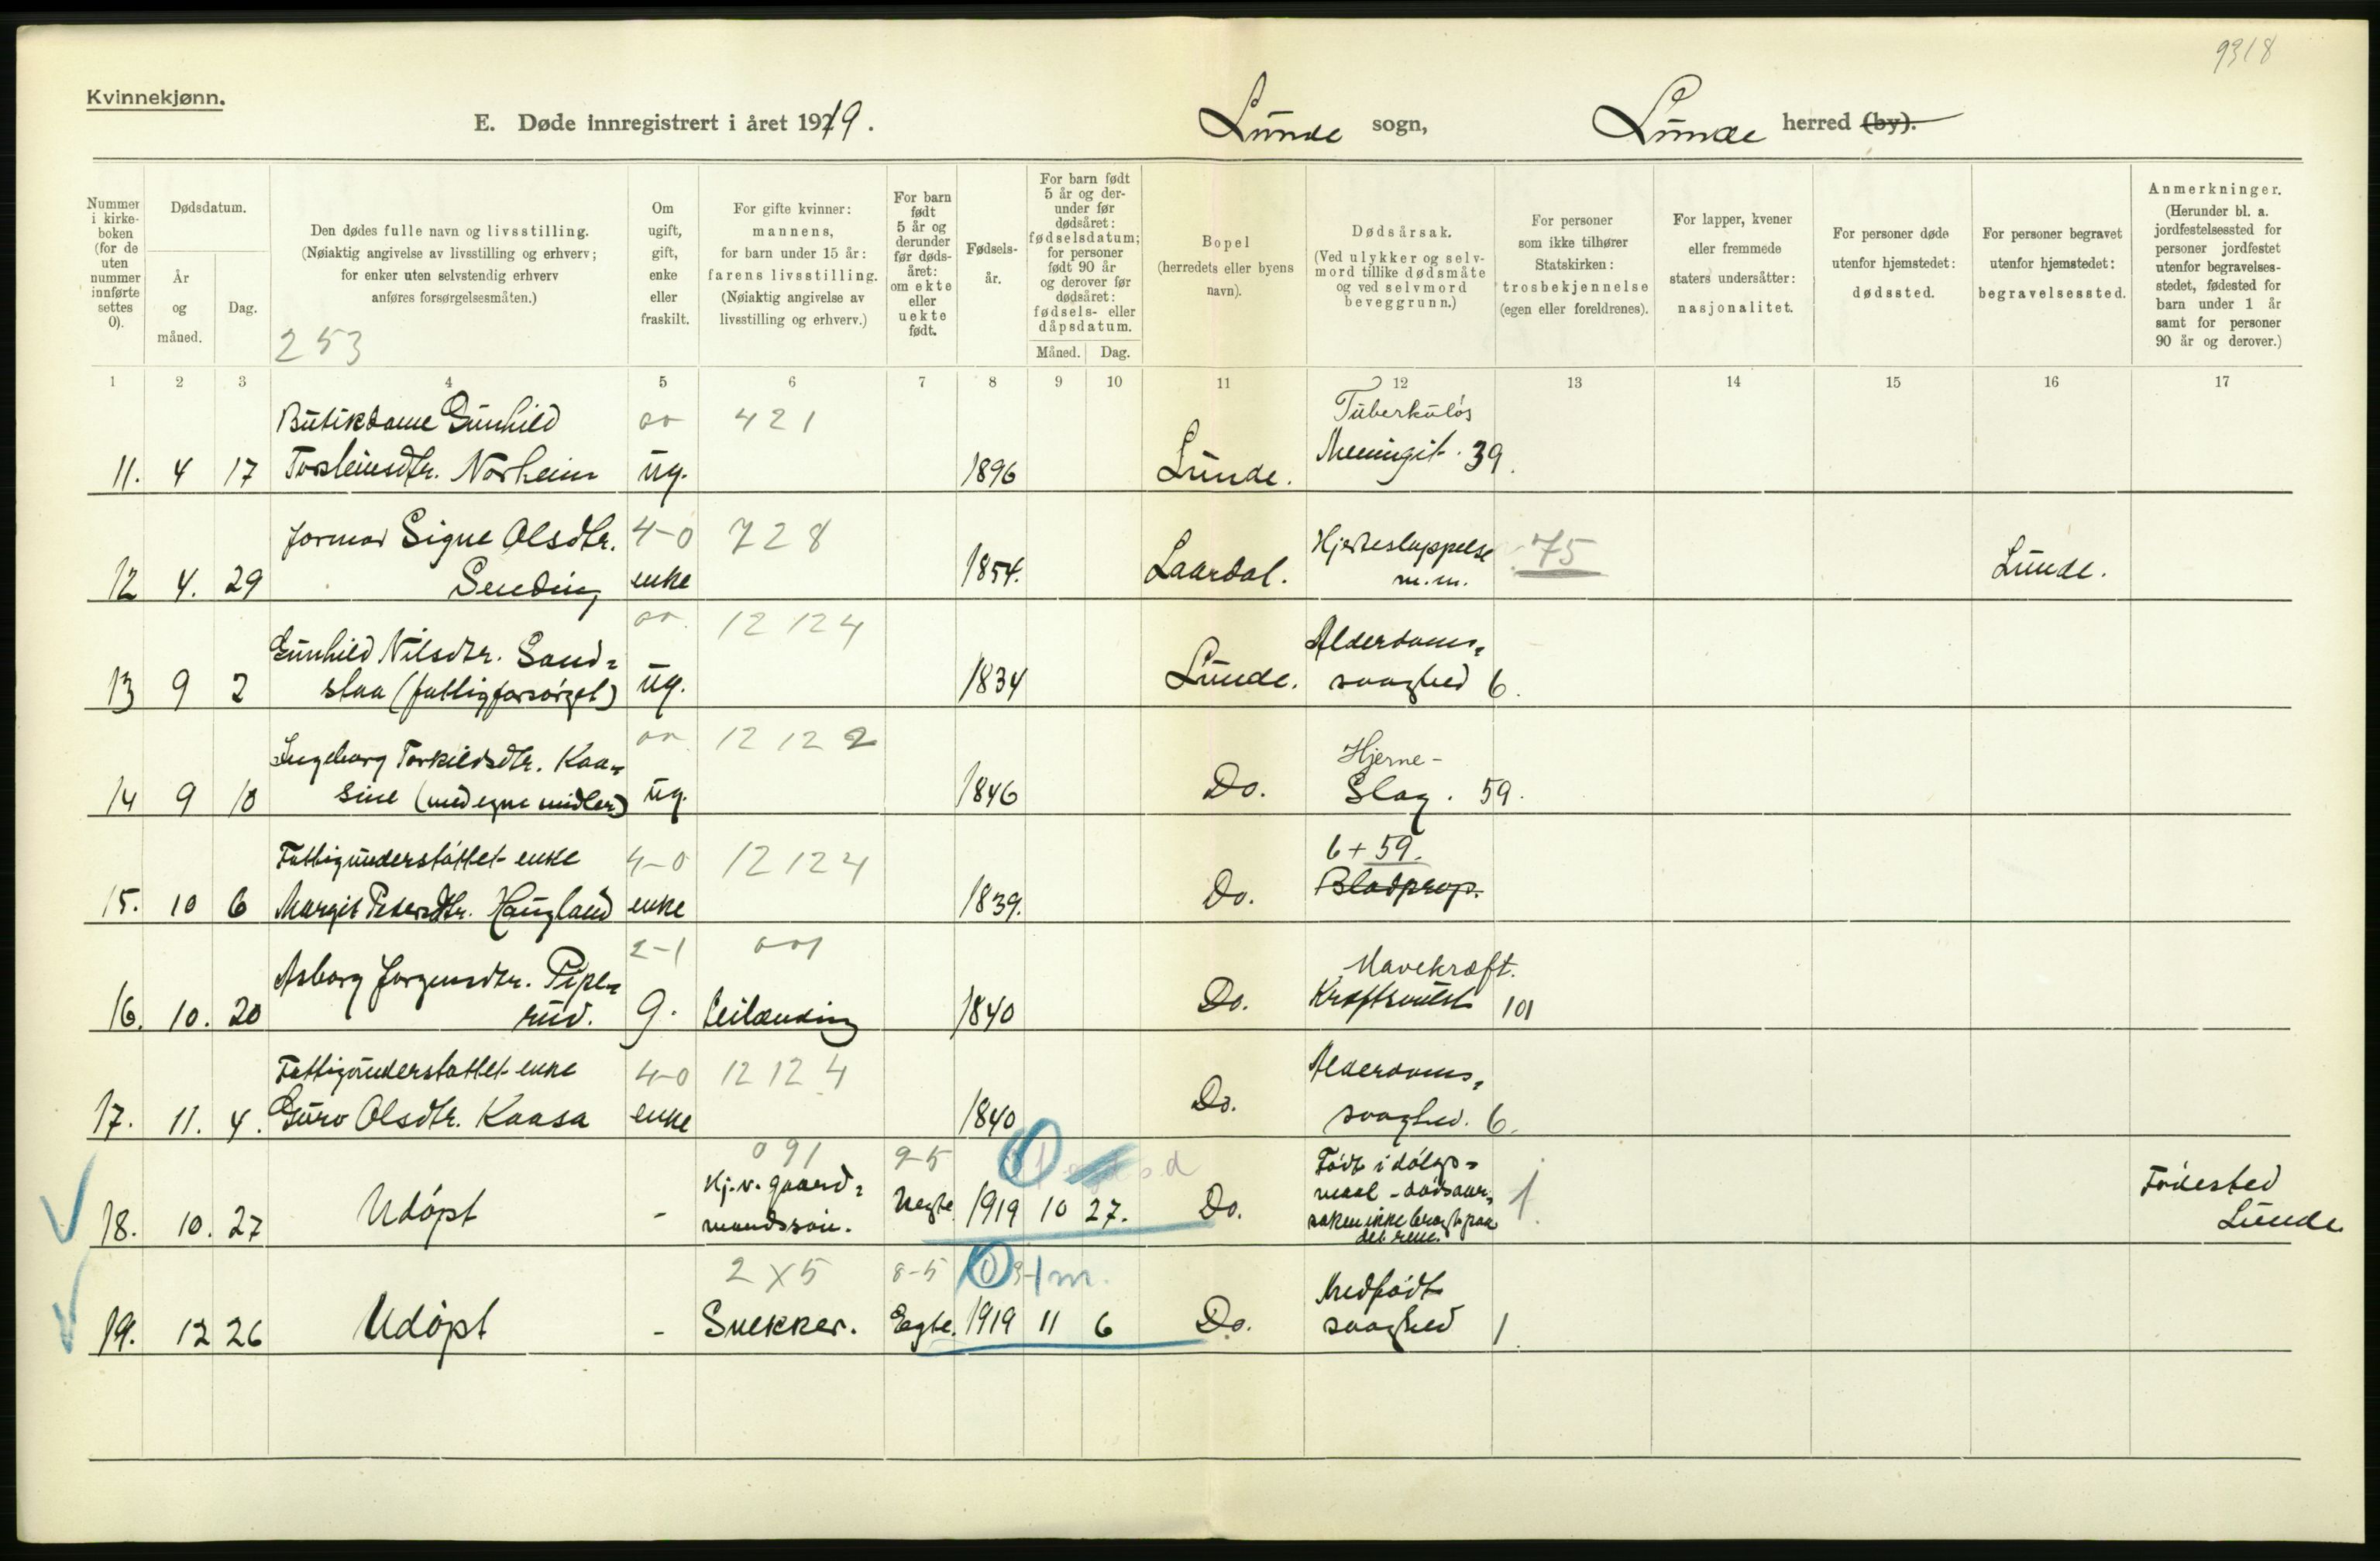 9318
Kvinnekjønn.
E. Døde innregistrert i året 1919. Lunde sogn, Lunde herred (by).
Nummer i kirke-boken (for de uten nummer innførte settes 0).
Dødsdatum.
År og måned.
Dag.
Den dødes fulle navn og livsstilling.
(Nøiaktig angivelse av livsstilling og erhverv;
for enker uten selvstendig erhverv
anføres forsørgelsesmåten.)
253
Om ugift, gift, enke eller fraskilt.
For gifte kvinner:
mannens,
for barn under 15 år:
farens livsstilling.
(Nøiaktig angivelse av
livsstilling og erhverv.)
For barn født 5 år og derunder før døds-året: om ekte eller uekte født.
Fødsels-år.
For barn født 5 år og der-under før dødsåret: fødselsdatum; for personer født 90 år og derover før dødsåret: fødsels- eller dåpsdatum.
Måned. Dag.
Bopel
(herredets eller byens
navn).
Dødsårsak.
(Ved ulykker og selv-
mord tillike dødsmåte
og ved selvmord
beveggrunn.)
For personer
som ikke tilhører
Statskirken:
trosbekjennelse
(egen eller foreldrenes).
For lapper, kvener
eller fremmede
staters undersåtter:
nasjonalitet.
For personer døde
utenfor hjemstedet:
dødssted.
For personer begravet
utenfor hjemstedet:
begravelsessted.
Anmerkninger.
(Herunder bl. a.
jordfestelsessted for
personer jordfestet
utenfor begravelses-
stedet, fødested for
barn under 1 år
samt for personer
90 år og derover.)
1 2 3 4 5 6 7 8 9 10 11 12 13 14 15 16 17
Butikdame Gunhild 00 421 Tuberkuløs
11. 4 17 Torsteinsdtr. Norheim ug. 1896 Lunde. Meningit. 39.
formor Signe Olsdtr. 4-0 728 Hjerteslappelse 75
12 4. 29 Sending enke 1854. Laardal. m.m. Lunde.
00 12 124
Gunhild Nilsdtr. Sand- Alderdoms-
13 9 2 staa (fattigforsørget) ug. 1834 Lunde. svaghed 6.
Ingeborg Torkildsdtr. Kaa- 00 12 12 2 Hjerne-
14 9 10 sine (med egne midler) ug. 1846 Do. Slag. 59.
Fattigunderstøttet enke 4-0 12 124 6+59.
15. 10 6 Margit Pedersdtr. Haugland enke 1839. Do. Blodprop.
2-1 001
Asborg Jørgensdtr. Pipe- Mavekræft.
16. 10. 20 rud. g. Leilænding 1840 Do. Kræftsvulst 101
Fattigunderstøttet enke 4-0 12 12 4 Alderdoms-
17. 11. 4. Guro Olsdtr. Kaasa enke 1840 Do. svaghed. 6.
091 9-5 0
Kj.v. gaard- Født i dølgs-
maal - dødsaar-
18. 10. 27 Udøpt - mandssøn. Uegte 1919 10 27. Do. saken ikke bragt paa 1.
det rene.
Fødested
Lunde
2 x 5 8-5 0 1 m. Medfødt
19. 12 26 Udøpt - Snekker. Egte. 1919 11 6 Do. svaghed 1.